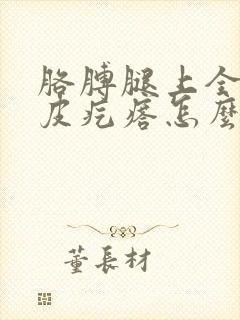 胳膊腿上全
皮疙瘩怎麼
董長材